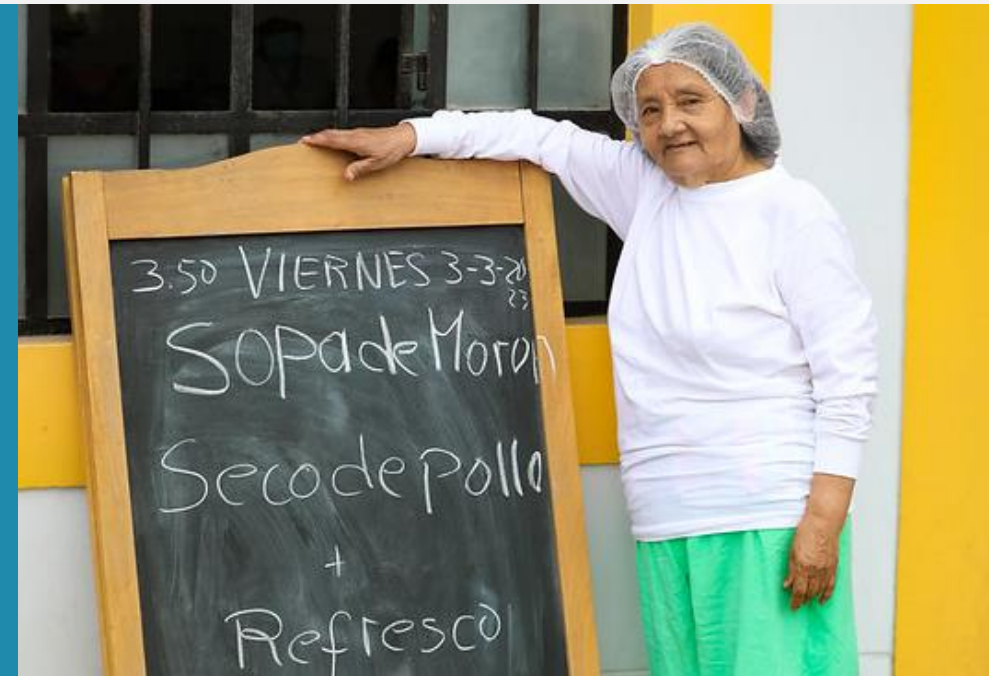 3.50 VIERNES 3-3-20
23
Sopa de Moron
Seco de pollo
+
Refresco